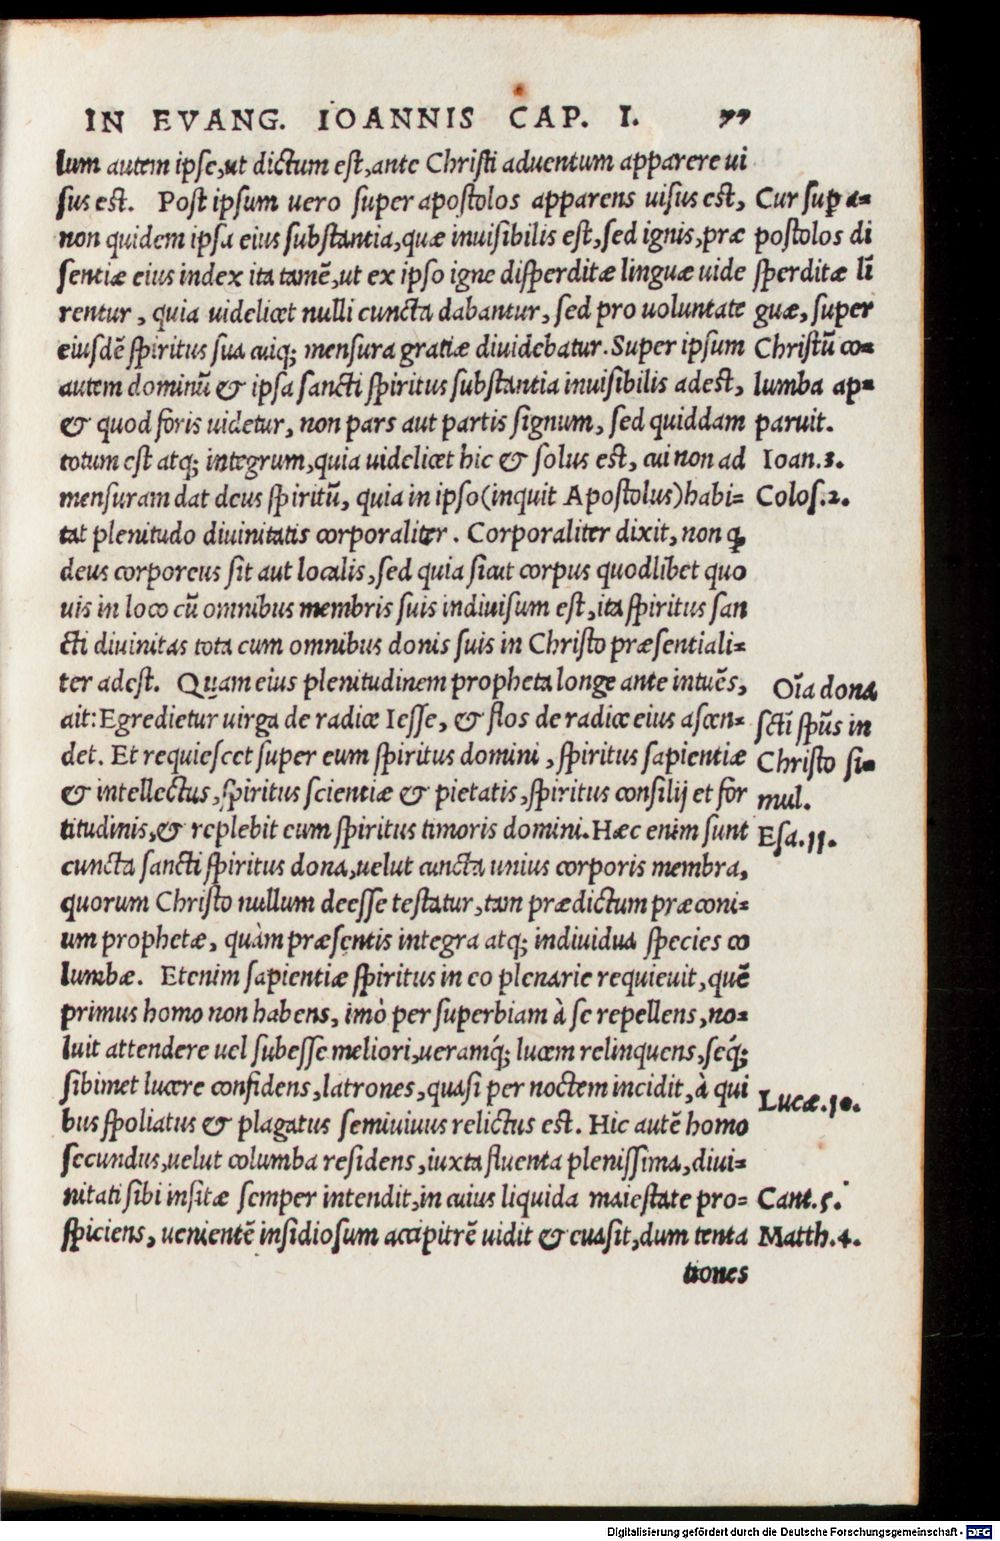 IN EVANG. IOANNIS CAP. I. 77
lum autem ipse,ut dictum est,ante Christi aduentum apparere ui
sus est. Post ipsum uero super apostolos apparens uisus est,
non quidem ipsa eius substantia,quæ inuisibilis est,sed ignis,præ
sentiæ eius index ita tamē,ut ex ipso igne disperditæ linguæ uide
rentur, quia uidelicet nulli cuncta dabantur, sed pro uoluntate
eiusdē spiritus sua cuiq; mensura gratiæ diuidebatur. Super ipsum
autem dominū & ipsa sancti spiritus substantia inuisibilis adest,
& quod foris uidetur, non pars aut partis signum, sed quiddam
totum est atq; integrum,quia uidelicet hic & solus est, cui non ad
mensuram dat deus spiritū, quia in ipso(inquit Apostolus)habi=
tat plenitudo diuinitatis corporaliter. Corporaliter dixit, non ꝙ
deus corporeus sit aut localis, sed quia sicut corpus quodlibet quo
uis in loco cū omnibus membris suis indiuisum est, ita spiritus san
cti diuinitas tota cum omnibus donis suis in Christo præsentiali=
ter adest. Quam eius plenitudinem propheta longe ante intuēs,
ait:Egredietur uirga de radice Iesse, & flos de radice eius ascen=
det. Et requiescet super eum spiritus domini, spiritus sapientiæ
& intellectus,spiritus scientiæ & pietatis,spiritus consilij et for
titudinis,& replebit eum spiritus timoris domini.Hæc enim sunt
cuncta sancti spiritus dona,uelut cuncta unius corporis membra,
quorum Christo nullum deesse testatur,tam prædictum præconi=
um prophetæ, quàm præsentis integra atq; indiuidua species co
lumbæ. Etenim sapientiæ spiritus in eo plenarie requieuit, quē
primus homo non habens, imò per superbiam à se repellens, no=
luit attendere uel subesse meliori,ueramq́; lucem relinquens, seq́;
sibimet lucere confidens, latrones, quasi per noctem incidit, à qui
bus spoliatus & plagatus semiuiuus relictus est. Hic autē homo
secundus,uelut columba residens, iuxta fluenta plenissima, diui=
nitati sibi insitæ semper intendit, in cuius liquida maiestate pro=
spiciens, uenientē insidiosum accipitrē uidit & euasit, dum tenta
tiones
Cur suꝑ a=
postolos di
sperditæ lī
guæ, super
Christū co=
lumba ap=
paruit.
Ioan.3.
Colos.2.
Oīa dona
scti spūs in
Christo si=
mul.
Esa.11.
Lucæ.10.
Cant.5.
Matth.4.
Digitalisierung gefördert durch die Deutsche Forschungsgemeinschaft - DFG